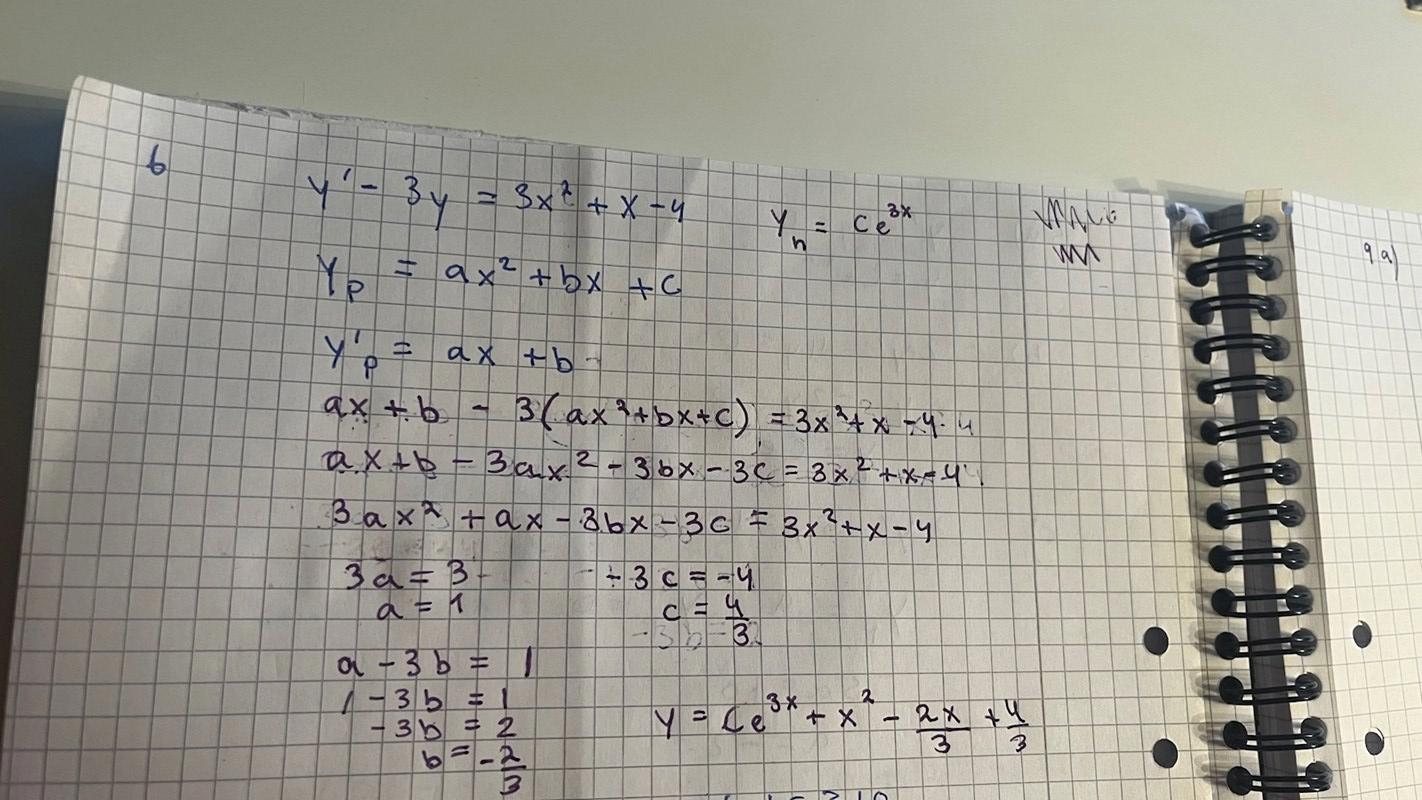 6
y' - 3y = 3x² + x - 4
y_h = Ce^{3x}
y_p = ax² + bx + c
y'_p = ax + b
ax + b - 3(ax² + bx + c) = 3x² + x - 4
ax + b - 3ax² - 3bx - 3c = 3x² + x - 4
3ax² + ax - 3bx - 3c = 3x² + x - 4
3a = 3
-3c = -4
a = 1
c = 4/3
a - 3b = 1
1 - 3b = 1
-3b = 2
b = -2/3
y = Ce^{3x} + x² - 2x/3 + 4/3
9a)